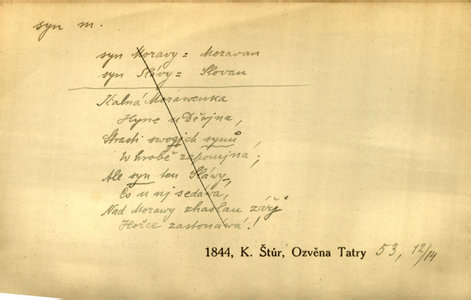 syn m.
syn Moravy = Moravan
syn Slávy = Slovan
Kalná Morawenka
Hyne u Děwjna,
Strasti swogich synů
W hrobě zapomjna;
Ale syn ten Sláwy,
Co u nj sedáwá,
Nad Morawy zhaslau zářj
Hořce zastonáwá!
1844, K. Štúr, Ozvěna Tatry 53, 12/14